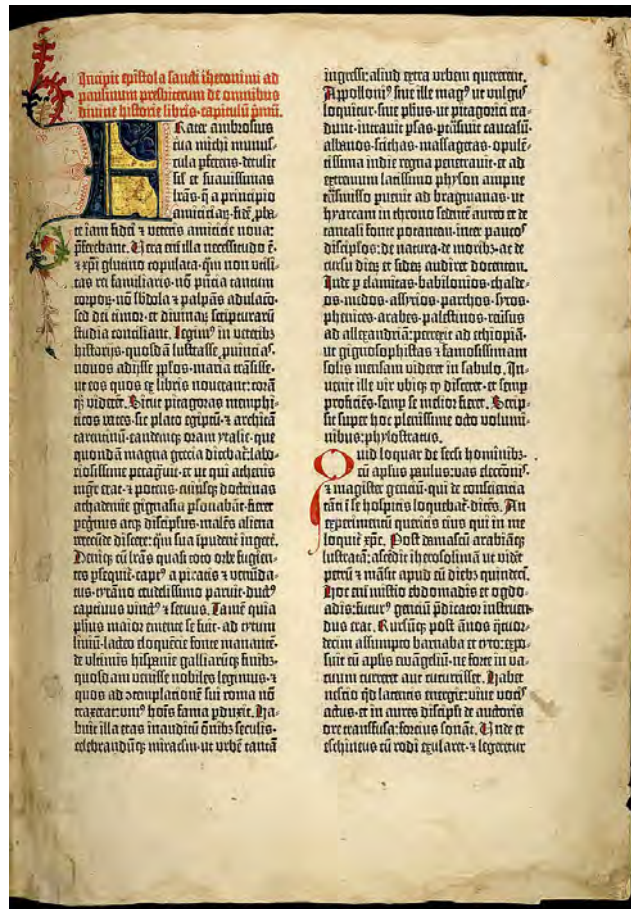 Incipit epistola sancti iheronimi ad
paulinum presbiterum de omnibus
divine historie libris·capitulū pͥmū.
Frater ambrosius
tua michi munus-
cula pferens·detulit
sil̄ et suavissimas
lrās·q̄ a principio
amiciciaꝝ·fidē pba-
te iam fidei ⁊ veteris amicicie nova:
pferebant. Vera enī illa necessitudo ē·
⁊ xpī glutino copulata·qm̄ non vtili-
tas rei familiaris·nō pn̄cia tantum
corpoꝝ·nō sbdola ⁊ palpās adulacō·
sed dei timor·et divinaꝝ scripturarū
studia conciliant. Legimꝰ in veteribꝫ
historijs·quosdā lustrasse ꝓvincias·
novos adijsse pplos·maria trāsisse·
ut eos quos ex libris noverant:corā
qꝫ viderēt. Sicut pitagoras memphi-
ticos vates·sic plato egiptū·⁊ architā
tarentinū·eandemqꝫ oram ytalie·que
quondā magna grecia dicebat̄:labo-
riosissime peragͣuit·et ut qui athenis
mgr̄ erat·⁊ potens·cuiusqꝫ doctrinas
achademie gignasia psonabāt·fieret
pegͥnus atqꝫ discipl̄us·malēs aliena
verecūde discere:qm̄ sua īpudent̄ ingerē.
Deniqꝫ cū lrās quasi toto orbe fugien-
tes psequit̄·captꝰ a piratis ⁊ venūda-
tus·tyrāno crudelissimo paruit·ductꝰ
captivus vinctꝰ ⁊ servus. Tamē quia
phūs maior emente se fuit·ad tytum
liviū·lacteo eloquētie fonte manantē·
de vltimis hispanie galliarūqꝫ finibꝫ·
quosdam venisse nobiles legimus·⁊
quos ad ꝯtemplationē sui roma nō
traxerat:vniꝰ hoīs fama pduxit. Ha-
buit illa etas inauditū ōnibꝫ seculis·
celebrandūqꝫ miraclm̄·ut vrbē tantā
ingressi:aliud extra vrbem quererent.
Appolloniꝰ sive ille magꝰ ut vulgus
loquitur·sive phūs·ut pitagorici tra-
dunt·intravit psas·ptͣnsivit caucasū·
albanos·scithas·massagetas·opulē-
tissima indie regna penetravit·et ad
extremum latissimo physon ampne
tͣsmisso puenit ad bragmanas·ut
hyarcam in throno sedentē aureo et de
tantali fonte potantem·inter paucos
discipl̄os:de natura·de moribꝫ·ac de
cursu dieꝝ et sideꝝ audiret docentem.
Inde p elamitas·babilonios·chalde-
os·medos·assyrios·parthos·syros·
phenices·arabes·palestinos·revsus
ad allexandriā:perrexit ad ethiopiā·
ut gignosophistas ⁊ famosissimam
solis mensam videret in sabulo. In-
venit ille vir vbiqꝫ qd disceret·et semp
proficiēs·semp se melior fieret. Scrip-
sit super hoc plenissime octo volumi-
nibus:phylostratus.
Quid loquar de secl̄i hominibꝫ·
cū aplūs paulus:vas electonis·
⁊ magister genciū·qui de consciencia
tāti ī se hospitis loquebat̄·dicēs. An
experimentū queritis eius qui in me
loquit̄ xpc̄. Post damascū arabiāqꝫ
lustratā:ascēdit iherosolimā ut vidēt
petrū ⁊ māsit apud eū diebꝫ quindecī.
Hoc enī misterio ebdomadis et ogdo-
adis:futurꝰ genciū pdicator instruen-
dus erat. Rursūqꝫ post ānos q̈tuor-
decim assumpto barnaba et tyto:expo-
suit cū aplis ewāgeliū·ne forte in va-
cuum curreret aut cucurrisset. Habet
nescio qd latentis energie:vive vocis
actus·et in aures discipl̄i de auctoris
ore transfusa:forcius sonāt. Vnde et
eschineus cū rodi exularet·⁊ legeretur